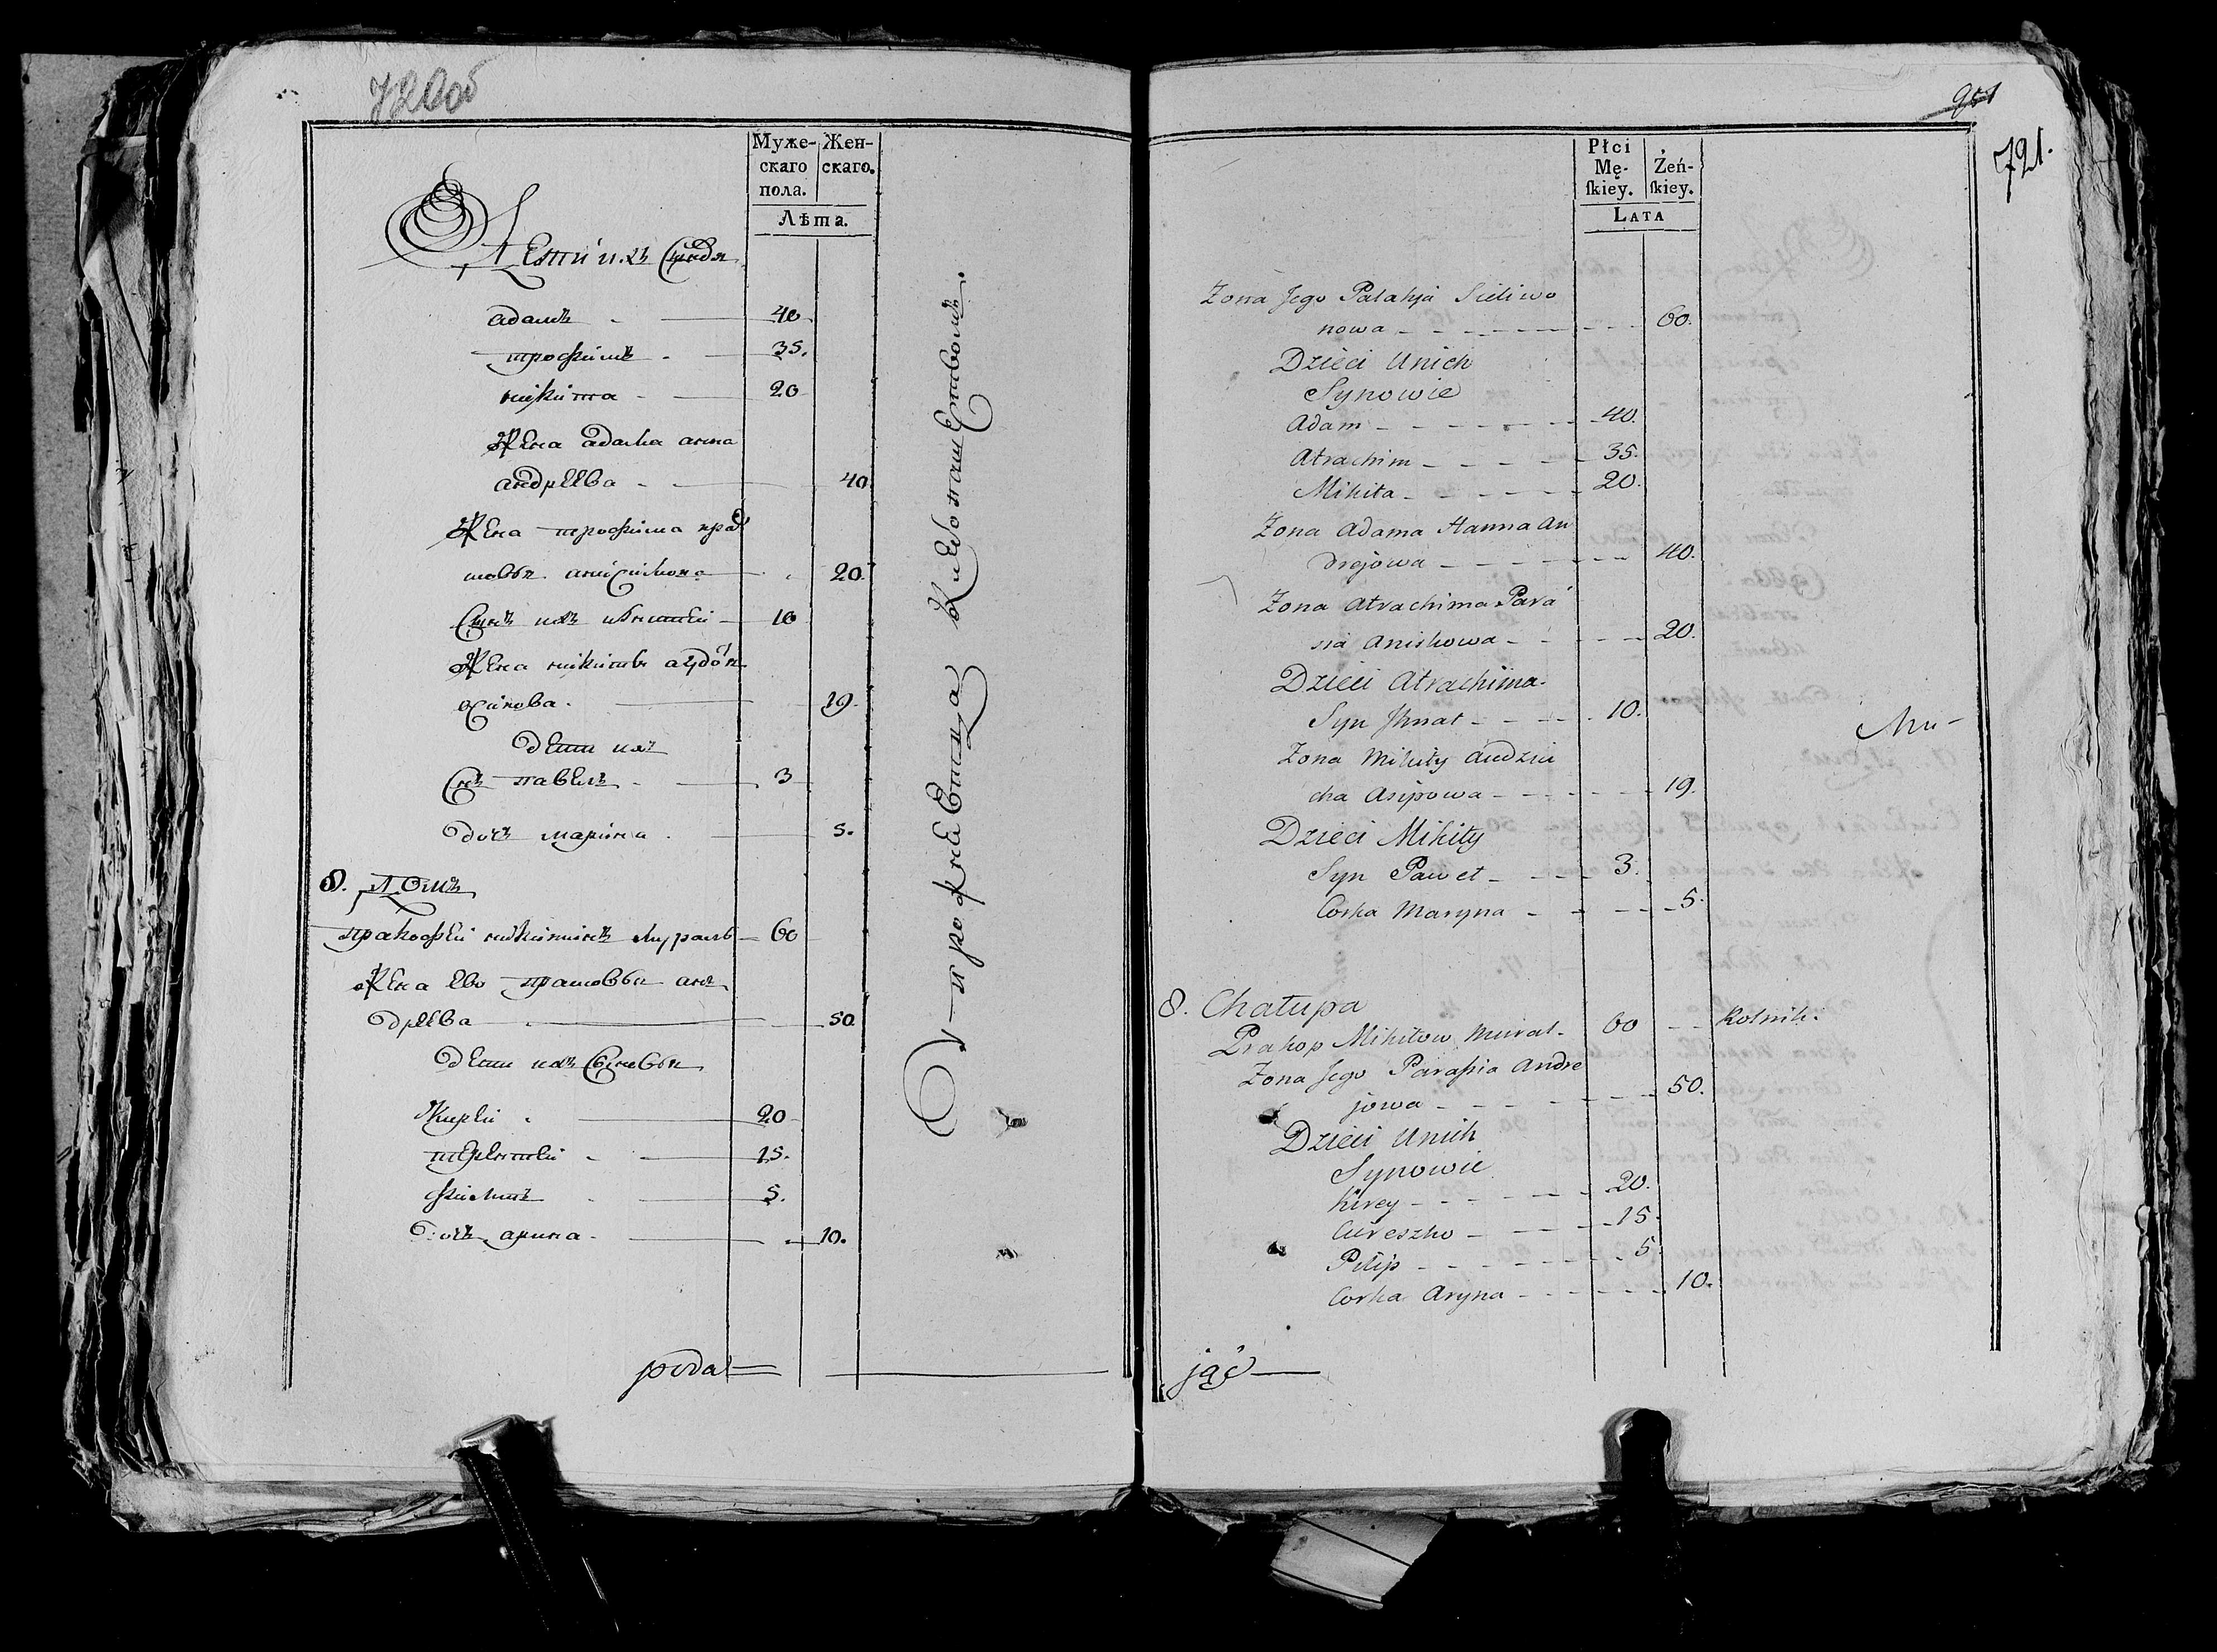 720об
Муже-
скаго
пола.
Жен-
скаго.
Лѣта.
Дети ихъ
адамъ 40
трофимъ 35.
никита 20
Жена адама анна
андреева 40
Жена трофима пра
20.
Сынъ ихъ игнатей 10
Жена никиты авдотя
осипова 19.
дети ихъ
Снъ павелъ 3
дочь марина 5.
8. Домъ
пракофей никитинъ мураль 60
Жена ево прасовья ан
дреева 50
дети ихъ Сыновья
Кирей 20
терентей 15.
филипъ 5.
дочь арина 10.
poda
951
721.
Płci
Mę-
ſkiey.
Żeń-
ſkiey.
LATA
Zona Jego Palahja Sieliwo
nowa 60.
Dzieci Unich
Synowie
Adam 40.
Atrachim 35.
Mikita 20.
Zona Adama Hanna An
drejowa 40.
Zona Atrachima Para
sia Aniskowa 20.
Dzieci Atrachima.
Syn Jhnat 10.
Zona Mikity Audziu
cha Asipowa 19.
Dzieci Mikity
Syn Paweł 3.
Corka Maryna 5.
8. Chałupa
Prakop Mikitow Mural. 60 Rolnik.
Zona Jego Paraſsia Andre
jowa 50.
Dzieci Unich
Synowie
Kirey 20.
Cureszko 15.
Pilip 5
Corka Aryna 10.
jąc